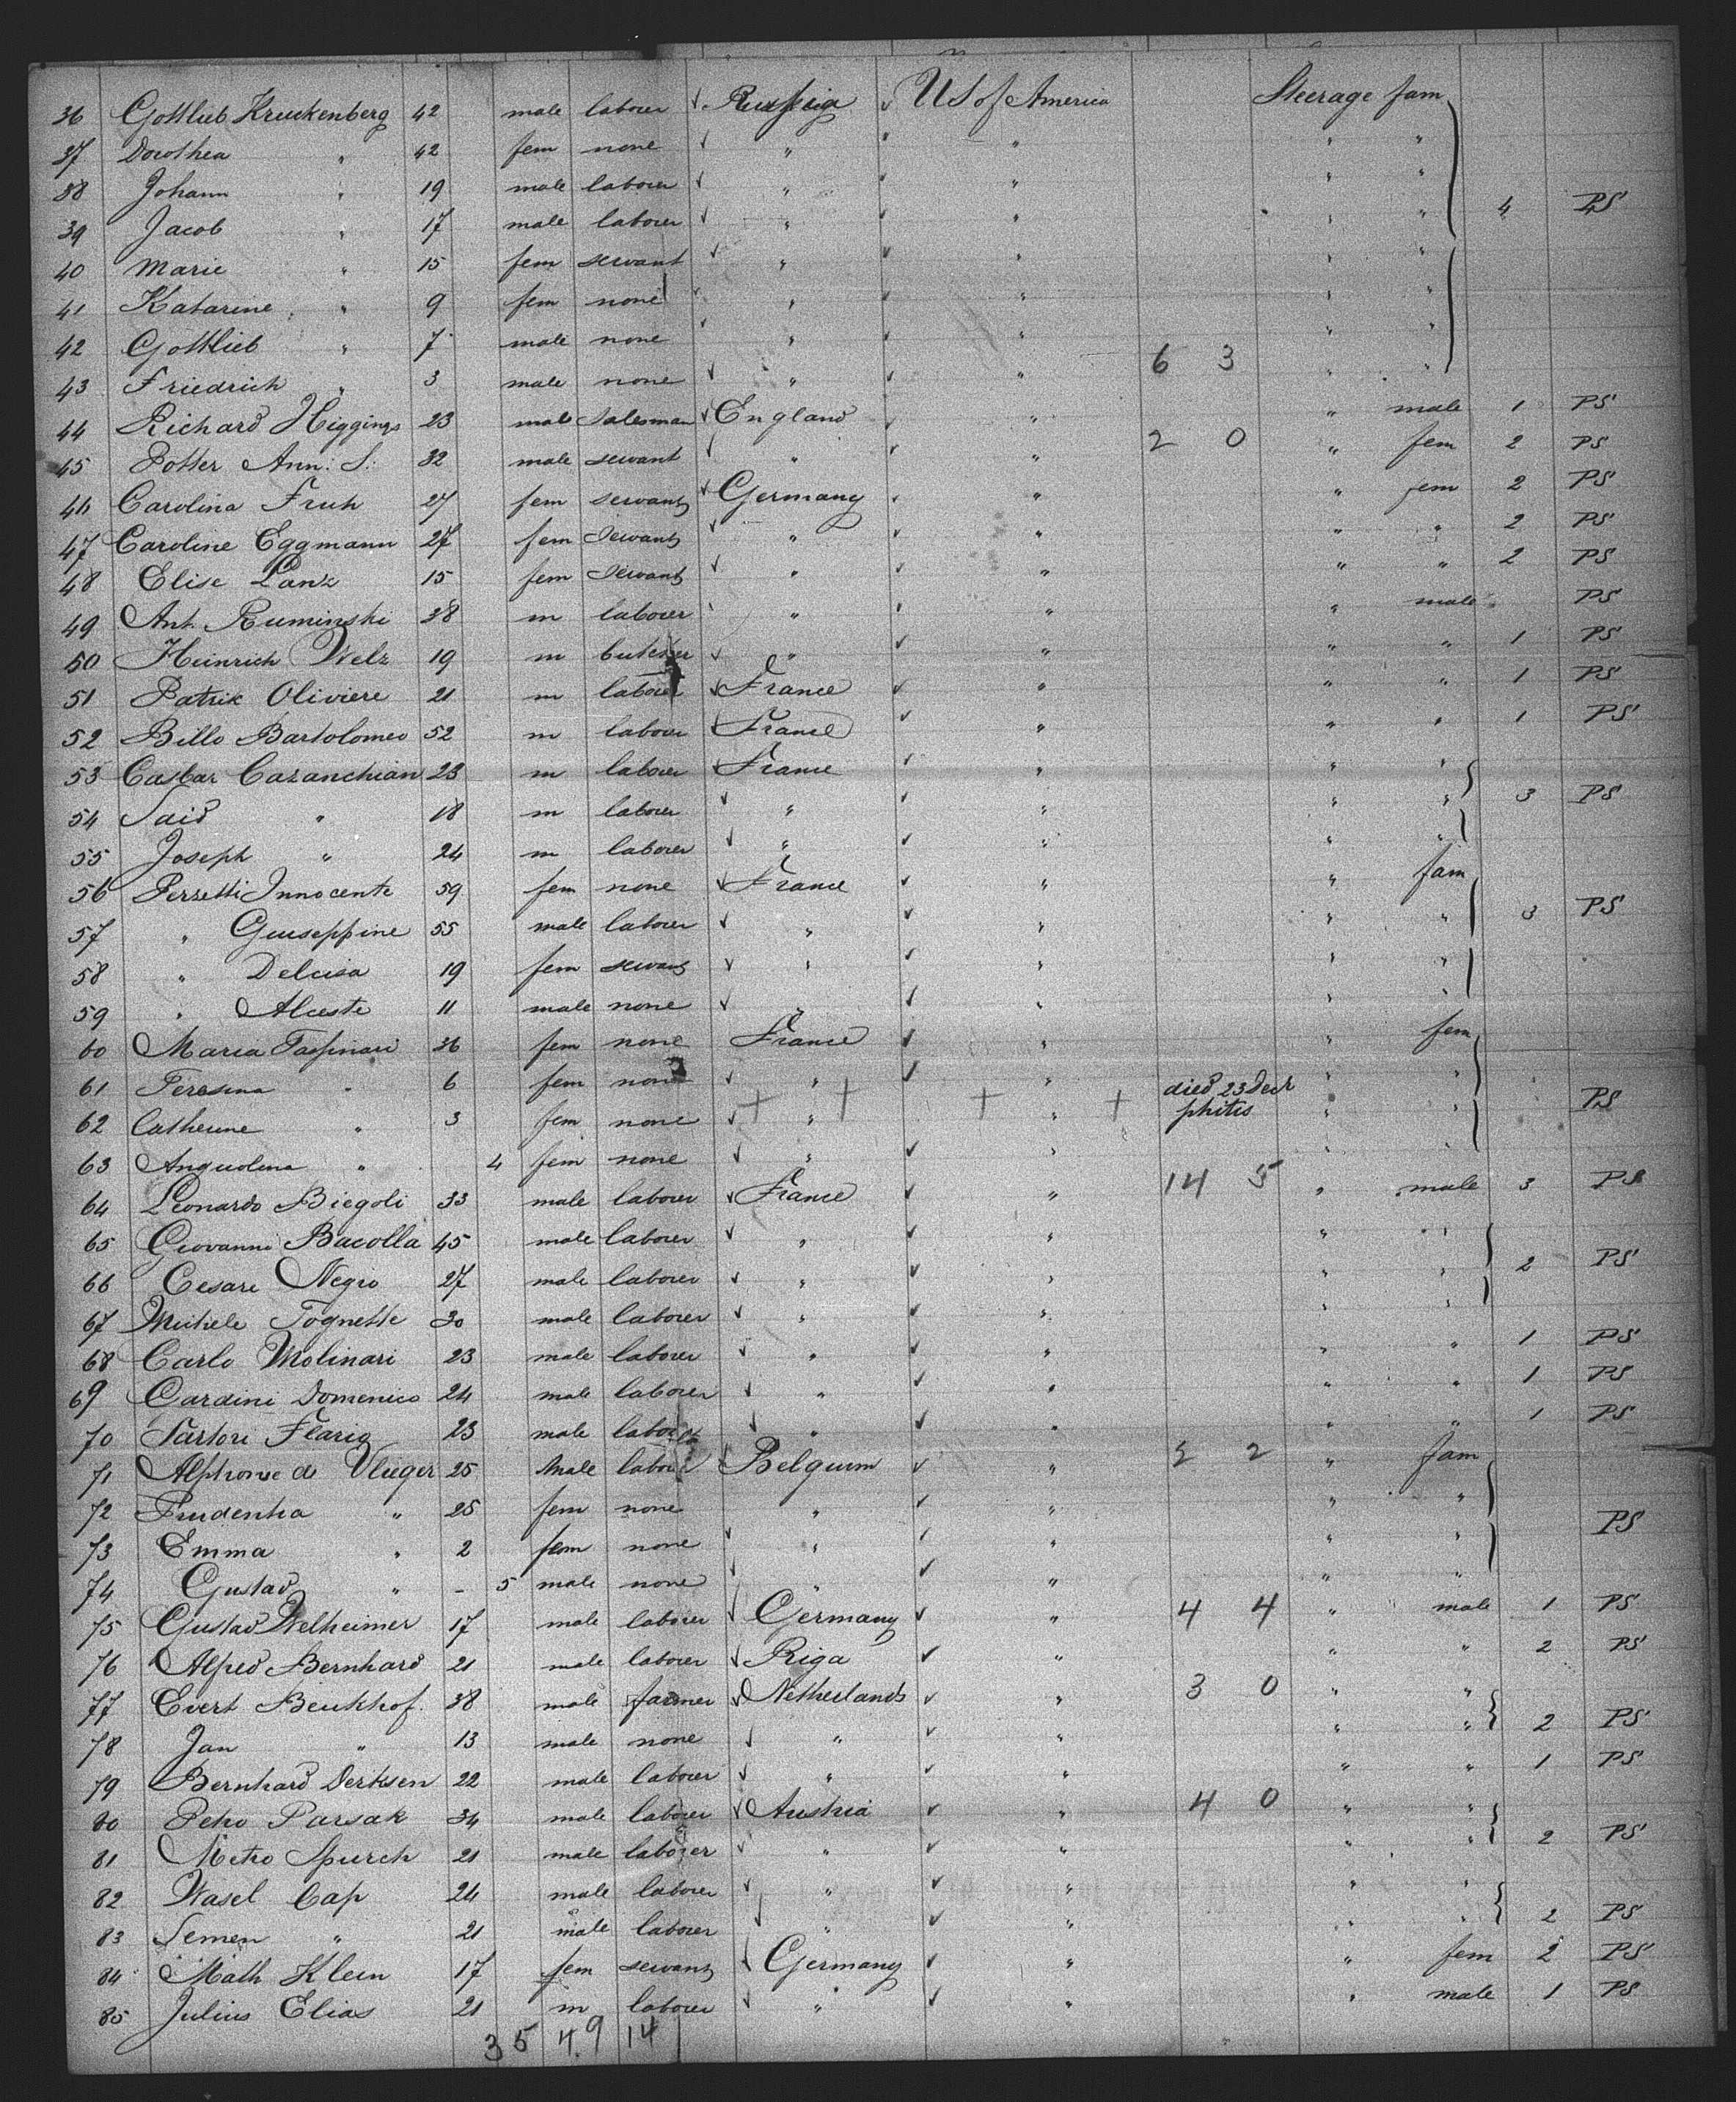 36 Gottlieb Kruckenberg 42 male laborer Russia US of America Steerage fam
37 Dorothea " 42 fem none " " " "
38 Johann " 19 male laborer " " " "
39 Jacob " 17 male laborer " " " " 4 PS
40 Marie " 15 fem servant " " " "
41 Katarine " 9 fem none " " " "
42 Gottlieb " 7 male none " " " "
43 Friedrich " 3 male none " " 6 3 " "
44 Richard Higgings 23 male salesman England " " male 1 PS
45 Potter Ann: S. 32 male servant " " 2 0 " fem 2 PS
46 Carolina Fruh 27 fem servant Germany " " fem 2 PS
47 Caroline Eggmann 27 fem servant " " " " 2 PS
48 Elise Lanz 15 fem servant " " " " 2 PS
49 Ant. Ruminski 38 m laborer " " " male " PS
50 Heinrich Welz 19 m butcher " " " " 1 PS
51 Patrik Oliviere 21 m laborer France " " " 1 PS
52 Billo Bartolomeo 52 m laborer France " " " 1 PS
53 Casbar Cazanchian 23 m laborer France " " "
54 Said " 18 m laborer " " " " 3 PS
55 Joseph " 24 m laborer " " " "
56 Perzetti Innocente 59 fem none France " " fam
57 " Guiseppine 55 male laborer " " " " 3 PS
58 " Delcisa 19 fem servant " " " "
59 " Alceste 11 male none " " " "
60 Maria Taspinari 36 fem none France " " fem
61 Teresina " 6 fem none " " " "
62 Catherine " 3 fem none " " died 23 Decb phitis " " PS
63 Anguolina " 4 fem none " " " "
64 Leonardo Biegoli 33 male laborer France " 14 5 " male 3 PS
65 Giovanni Bacolla 45 male laborer " " " "
66 Cesare Negro 27 male laborer " " " " 2 PS
67 Michele Tognette 30 male laborer " " " "
68 Carlo Molinari 23 male laborer " " " " 1 PS
69 Cardini Domenico 24 male laborer " " " " 1 PS
70 Sartori Flario 23 male laborer " " " " 1 PS
71 Alphonse de Vlieger 25 male laborer Belgium " 5 2 " fam
72 Prudentia " 25 fem none " " " "
73 Emma " 2 fem none " " " " PS
74 Gustav " - 5 male none " " " "
75 Gustav Welheimer 17 male laborer Germany " 4 4 " male 1 PS
76 Alfred Bernhard 21 male laborer Riga " " " 2 PS
77 Evert Beukhof. 38 male farmer Netherlands " 3 0 " "
78 Jan " 13 male none " " " " 2 PS
79 Bernhard Derksen 22 male laborer " " " " 1 PS
80 Petro Parsak 34 male laborer Austria " 4 0 " "
81 Metro Spurch 21 male laborer " " " " 2 PS
82 Wasel Cap 24 male laborer " " " "
83 Semen " 21 male laborer " " " " 2 PS
84 Math Klein 17 fem servant Germany " " fem 2 PS
85 Julius Elias 21 m laborer " " " male 1 PS
35 49 14